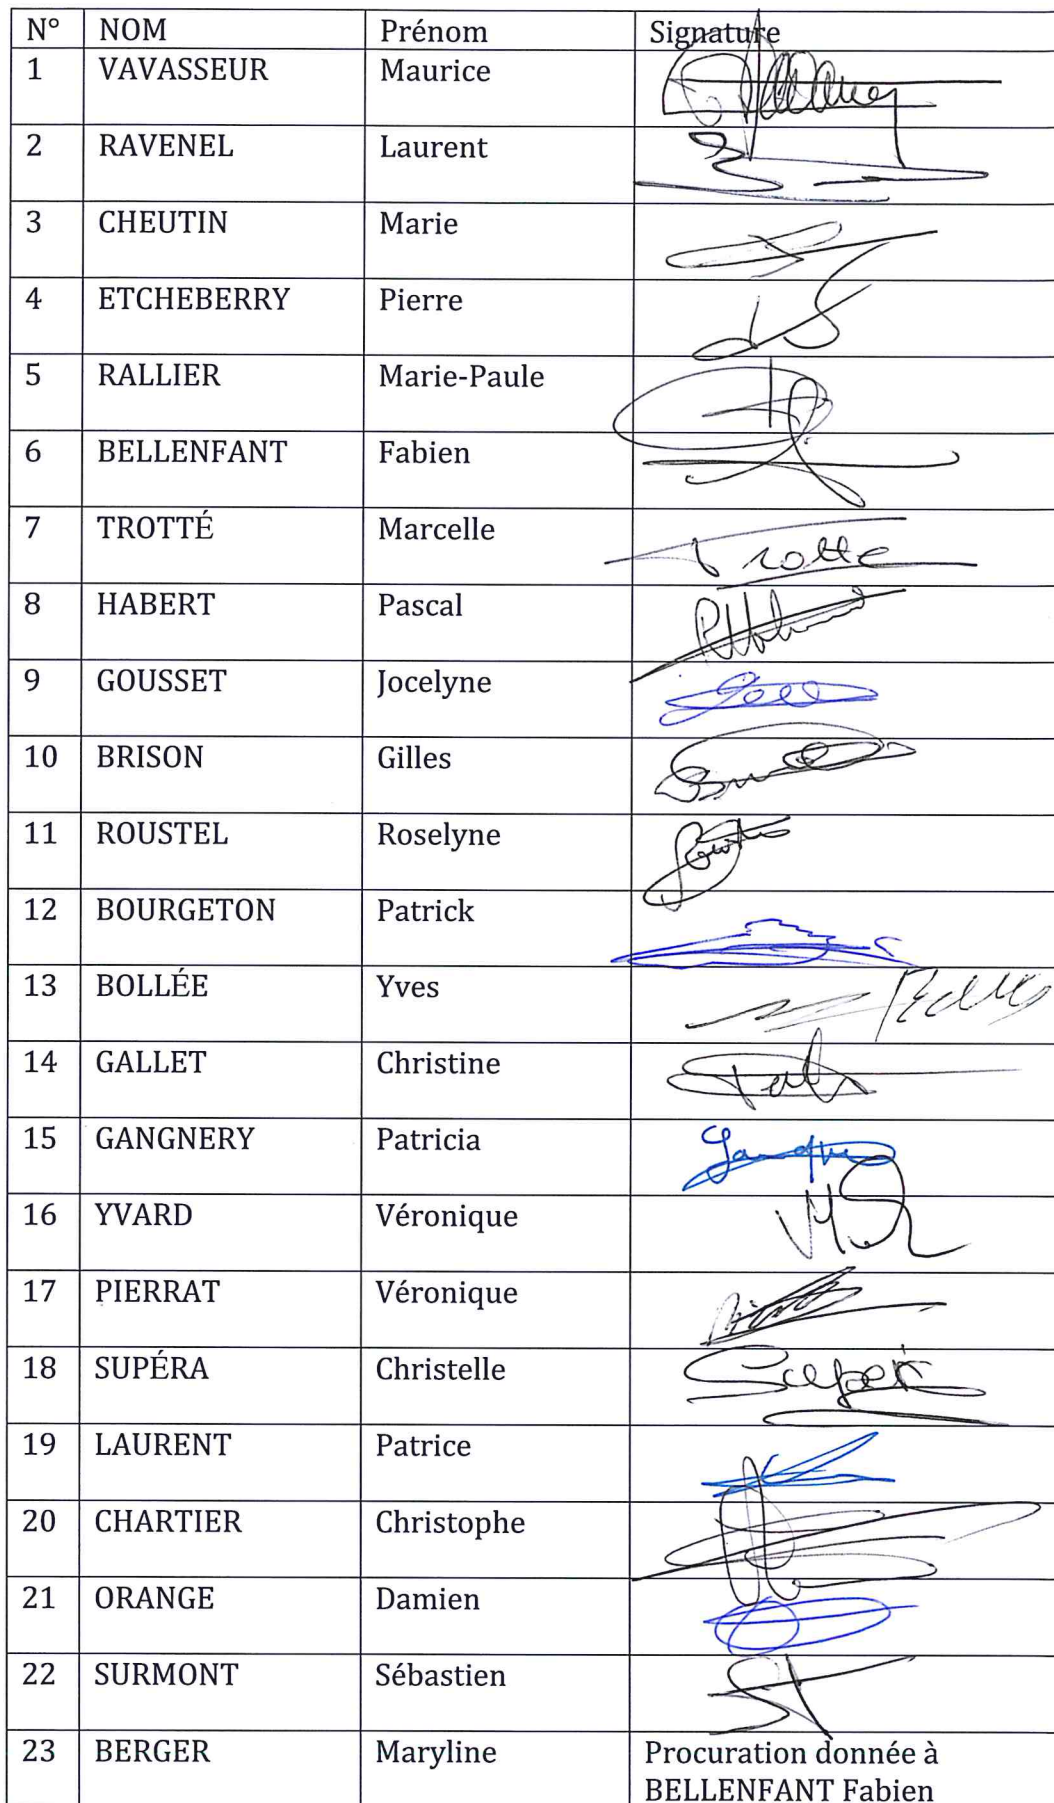 N° NOM Prénom Signature
1 VAVASSEUR Maurice
2 RAVENEL Laurent
3 CHEUTIN Marie
4 ETCHEBERRY Pierre
5 RALLIER Marie-Paule
6 BELLENFANT Fabien
7 TROTTÉ Marcelle Trotte
8 HABERT Pascal
9 GOUSSET Jocelyne
10 BRISON Gilles
11 ROUSTEL Roselyne
12 BOURGETON Patrick
13 BOLLÉE Yves
14 GALLET Christine
15 GANGNERY Patricia
16 YVARD Véronique
17 PIERRAT Véronique
18 SUPÉRA Christelle
19 LAURENT Patrice
20 CHARTIER Christophe
21 ORANGE Damien
22 SURMONT Sébastien
23 BERGER Maryline Procuration donnée à
BELLENFANT Fabien